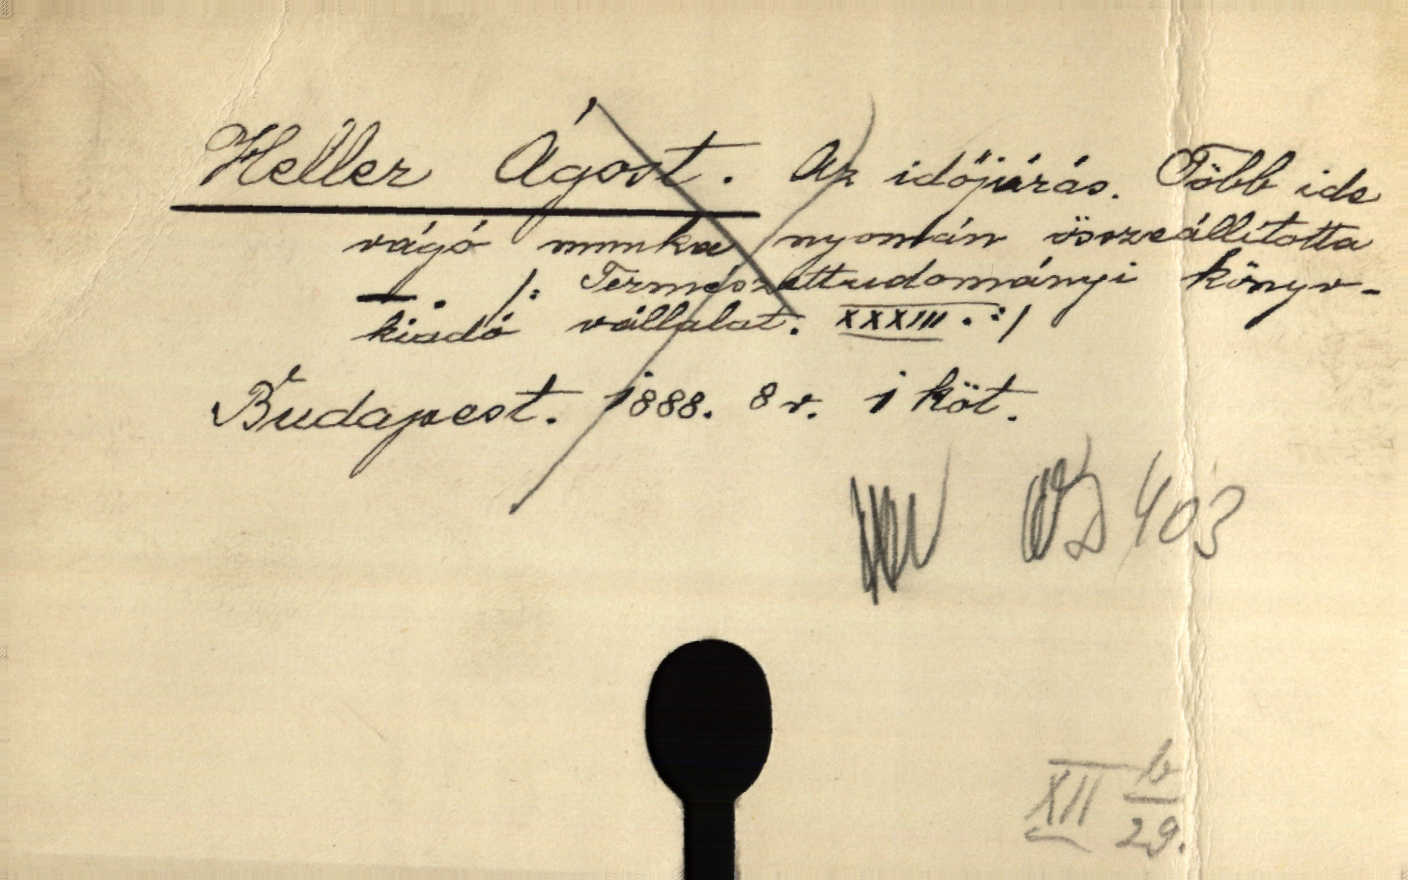 Heller Ágost. Az időjárás. Több ide
vágó munka nyomán összeállította
—. /: Természettudományi könyv-
kiadó vállalat. XXXIII. :/
Budapest. 1888. 8 r. 1 köt.
403
XII b
29.